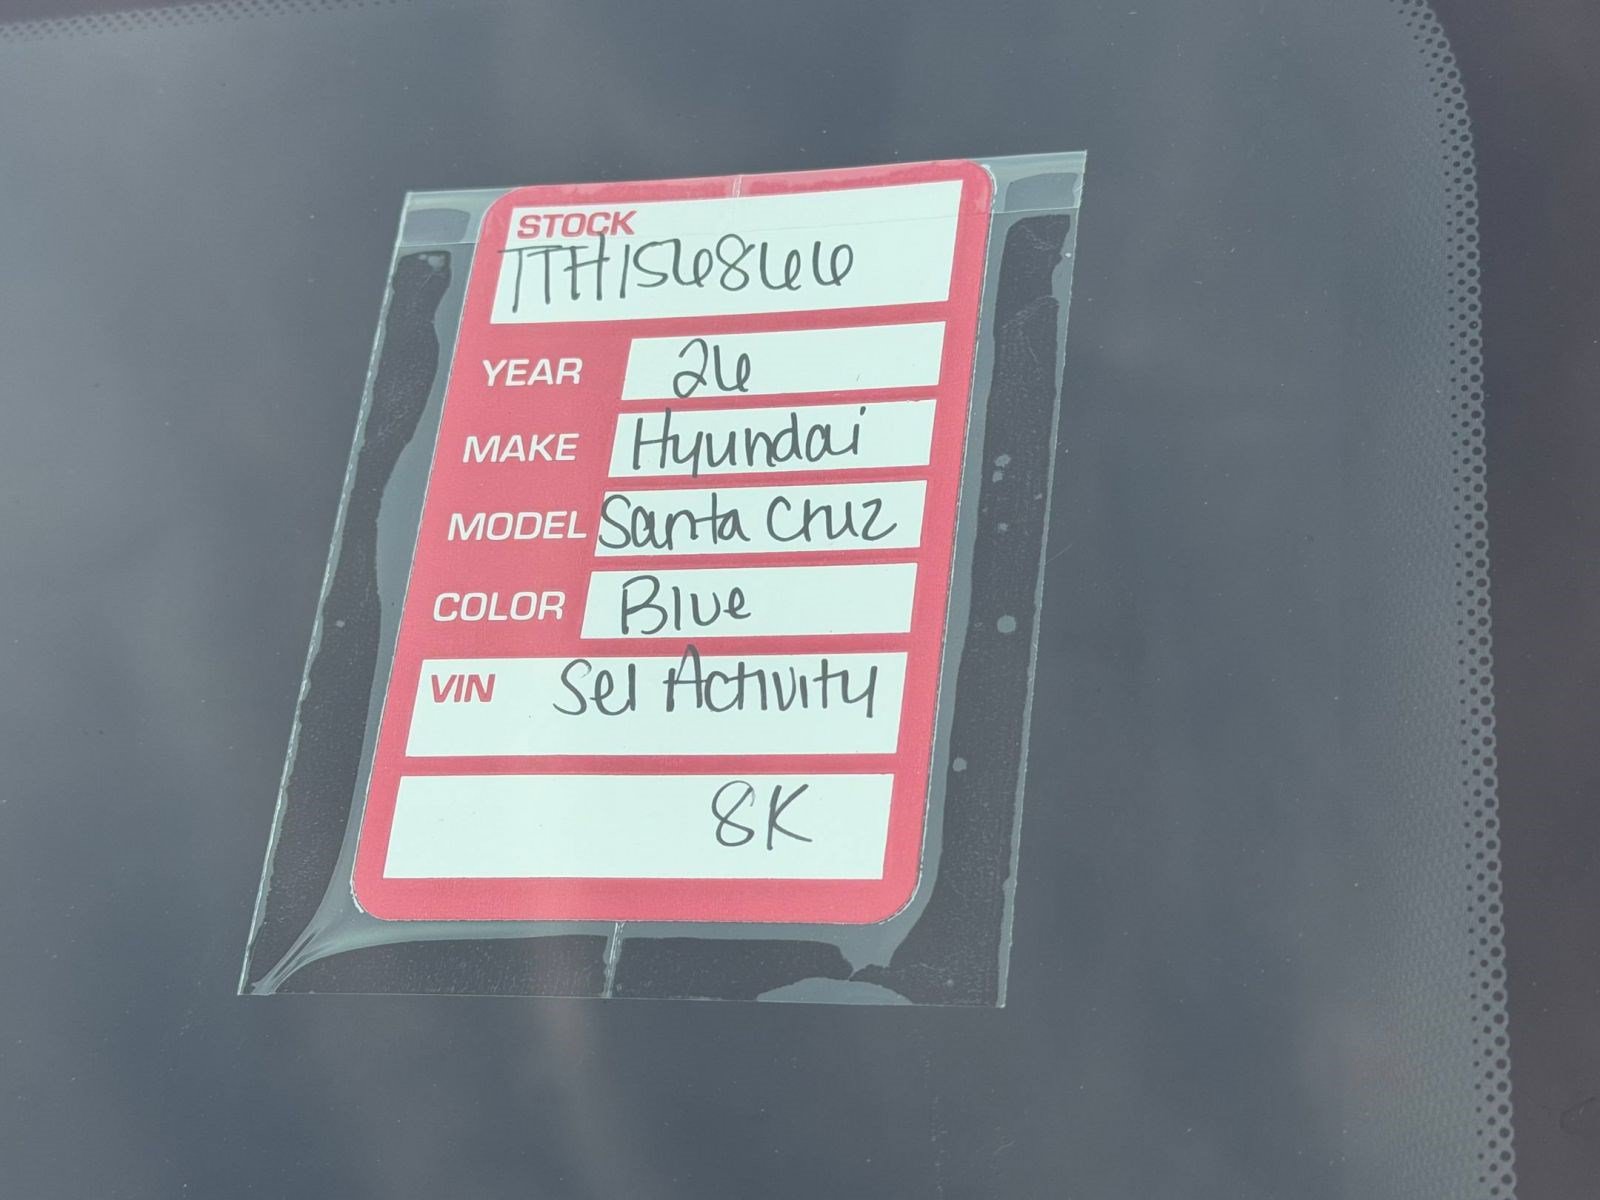 STOCK
TTH156866
YEAR 26
MAKE Hyundai
MODEL Santa Cruz
COLOR Blue
VIN Sel Activity
8K